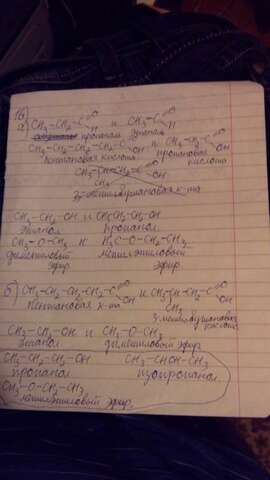 16)
а) CH₃–CH₂–C=O H и CH₃–C=O H
пропаналь этаналь
CH₃–CH₂–CH₂–CH₂–C=O OH и CH₃–CH₂–C=O OH
пентановая кислота пропановая кислота
CH₃–CH–CH₂–C=O OH
CH₃
3-метилбутановая к-та
CH₃–CH₂–OH и CH₃CH₂CH₂–OH
Этанол пропанол
CH₃–O–CH₃ и H₃C–O–CH₂–CH₃
диметиловый эфир метилэтиловый эфир
б) CH₃–CH₂–CH₂–CH₂–C=O OH и CH₃–CH–CH₂–C=O OH
CH₃
пентановая к-та 3-метилбутановая кислота
CH₃–CH₂–OH и CH₃–O–CH₃
этанол диметиловый эфир
CH₃–CH₂–CH₂–OH CH₃–CHOH–CH₃
пропанол изопропанол
CH₃–O–CH₂–CH₃
метилэтиловый эфир